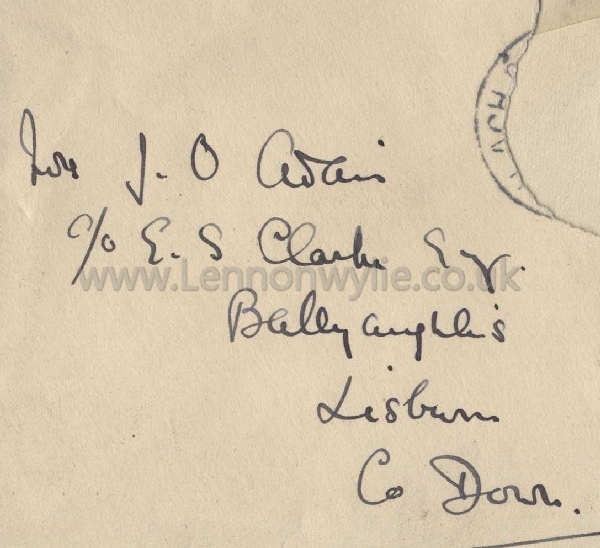 Mrs J. O Adair
c/o E. S Clarke Esq.
www.Lennonwylie.co.uk
Ballyaughlis
Lisburn
Co Down.